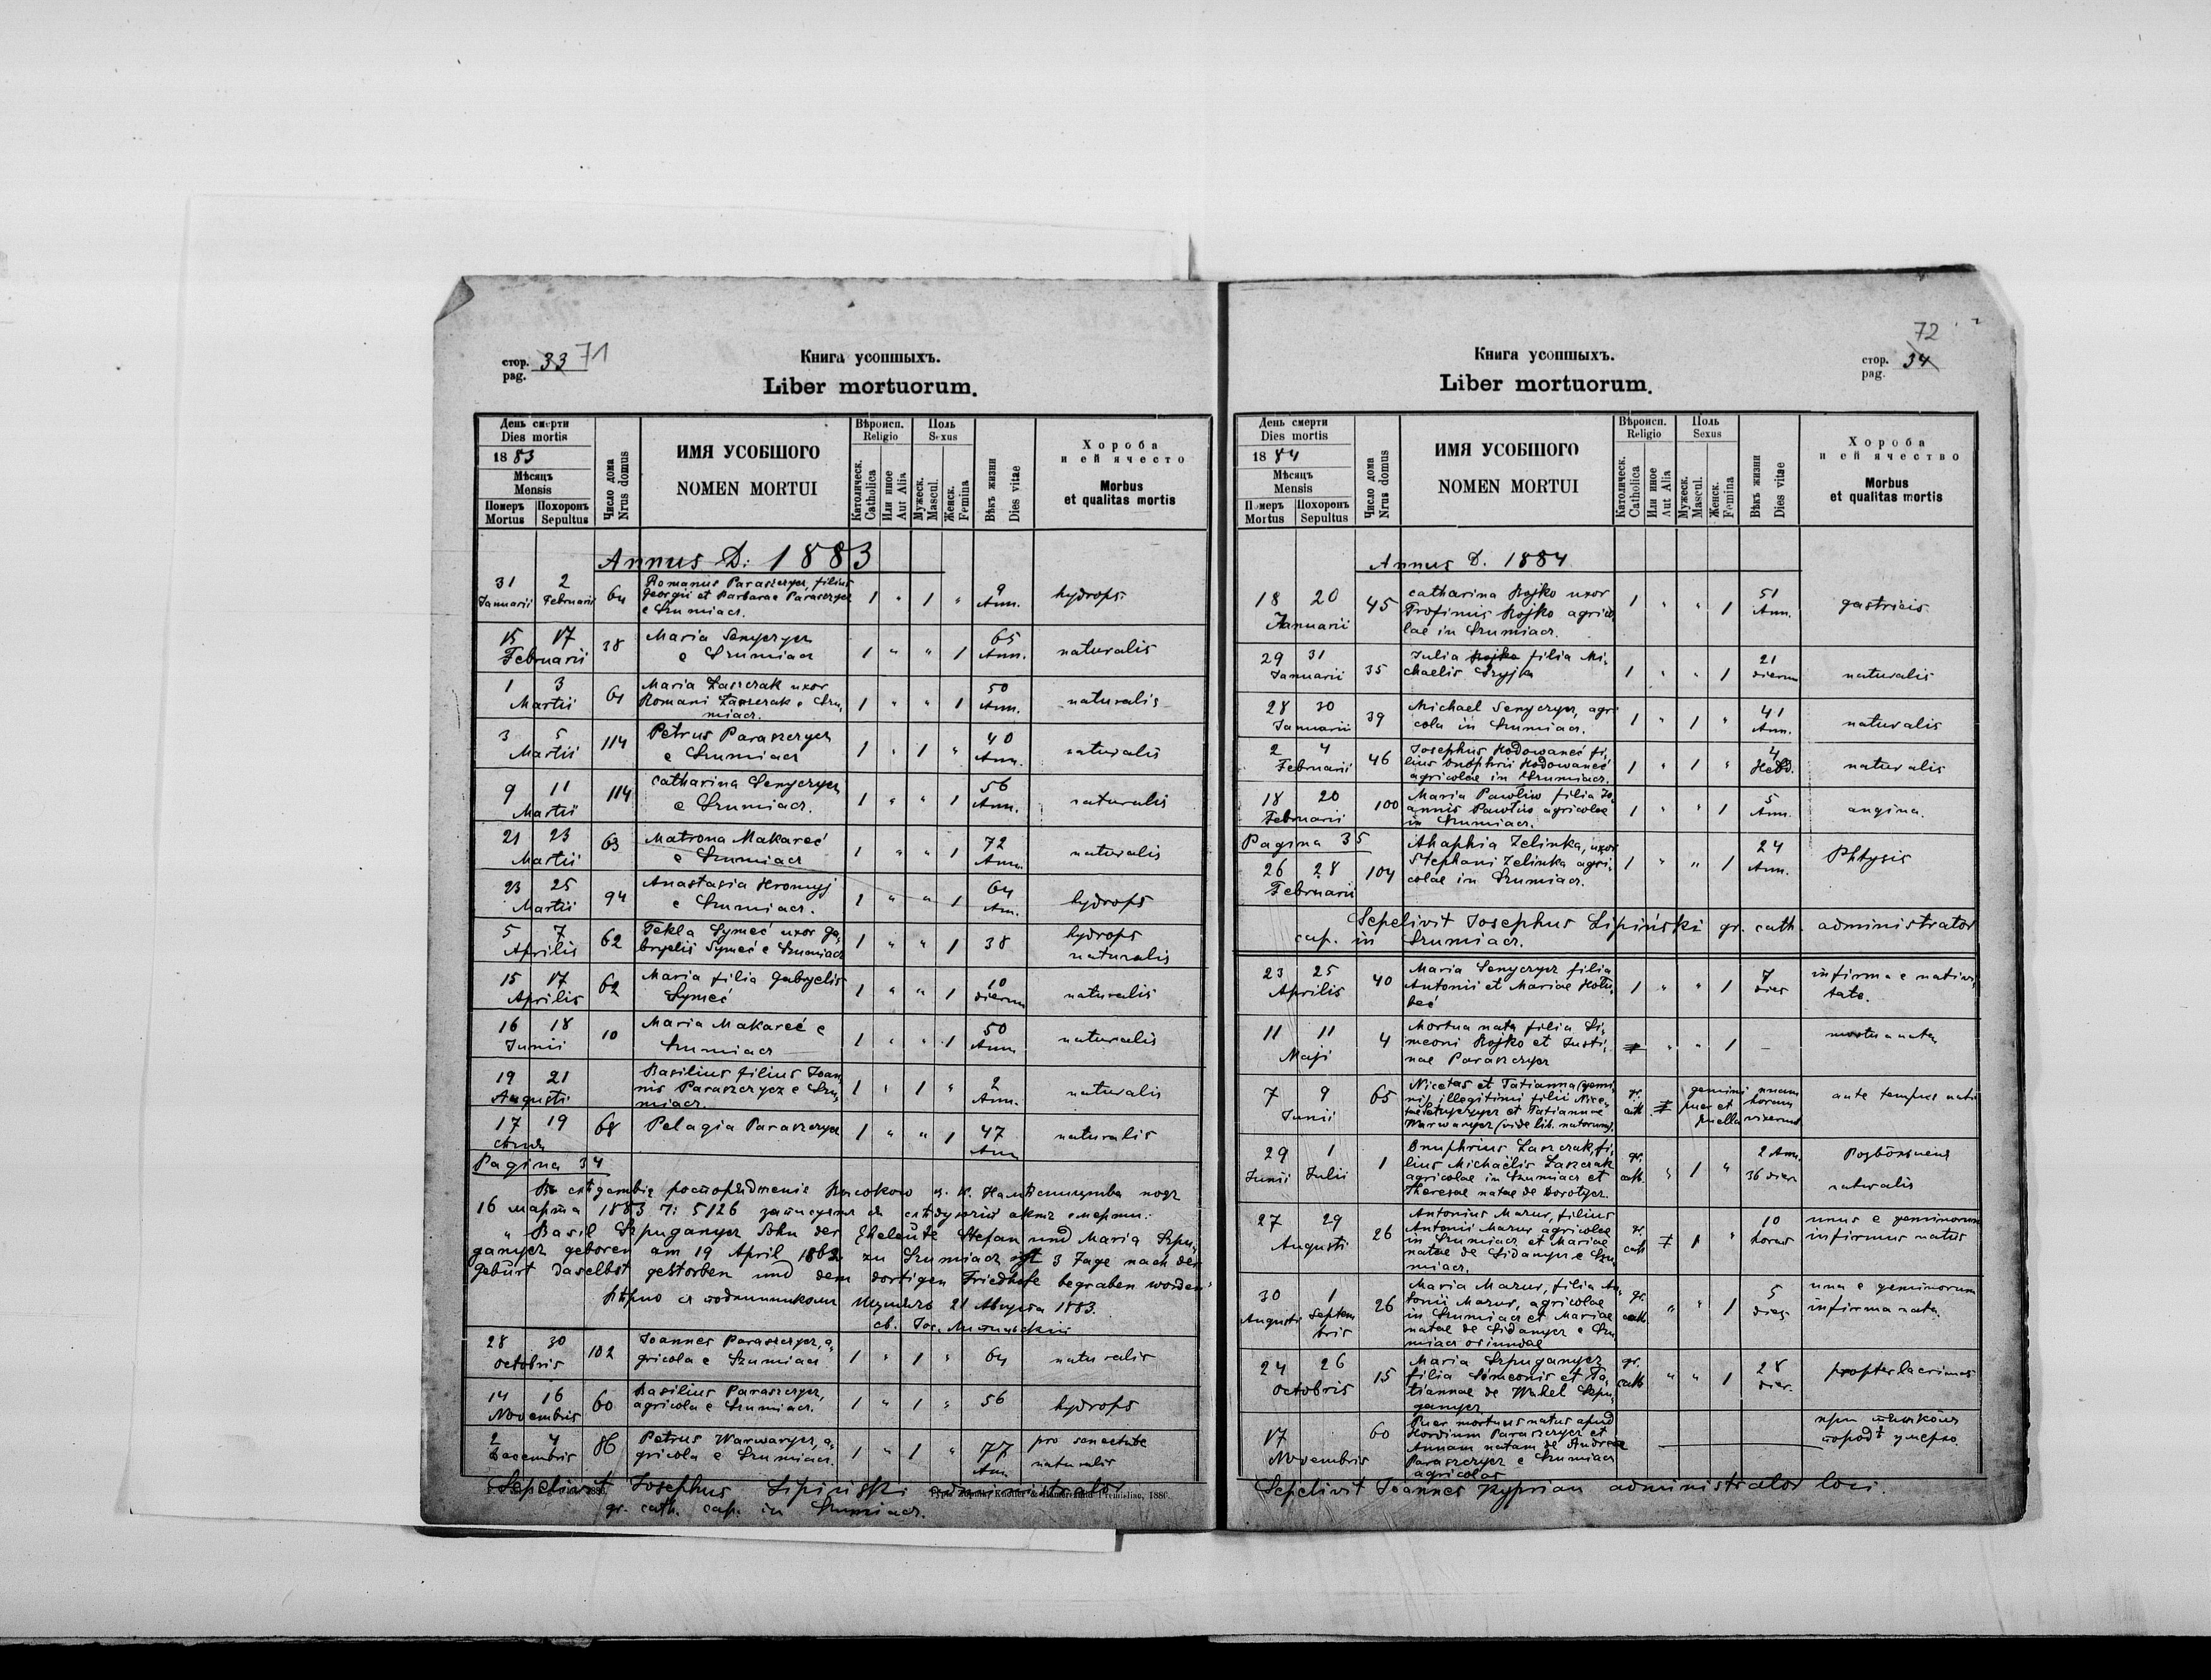 стор. 33 71
pag.
Книга усопшыхъ.
Liber mortuorum.
День смерти
Dies mortis
1883
Мѣсяцъ
Mensis
Померъ Похоронъ
Mortus Sepultus
Число дома
Nrus domus
ИМЯ УСОБШОГО
NOMEN MORTUI
Вѣроисп.
Religio
Католическ.
Catholica
Или иное
Aut Alia
Поль
Sexus
Мужеск.
Mascul.
Женск.
Femina
Вѣкъ жизни
Dies vitae
Хороба
и ей ячесто
Morbus
et qualitas mortis
Annus D: 1883
31 Januarii 2 Februarii 64 Romanus Paraszczycz, filius 1 " 1 " 9 Ann. hydrops
Georgii et Barbarae Paraszczycz
e Szumiacz.
15 17 Februarii 38 Maria Senyczycz 1 " " 1 65 Ann. naturalis
e Szumiacz
1 3 Martii 61 Maria Laszczak uxor 1 " " 1 50 Ann. naturalis
Romani Laszczak e Szu-
miacz.
3 5 Martii 114 Petrus Paraszczycz 1 " 1 " 40 Ann. naturalis
e Szumiacz
9 11 Martii 114 Catharina Senyczycz 1 " " 1 56 Ann. naturalis
e Szumiacz.
21 23 Martii 63 Matrona Makareć 1 " " 1 72 Ann. naturalis
e Szumiacz
23 25 Martii 94 Anastasia Hromyj 1 " " 1 64 An. hydrops
e Szumiacz.
5 7 Aprilis 62 Tekla Symeć uxor Ga- 1 " " 1 38 hydrops
bryelis Symeć e Szumiacz naturalis
15 17 Aprilis 62 Maria filia Gabryelis 1 " " 1 10 dierum naturalis
Symeć
16 18 Junii 10 Maria Makareć e 1 " " 1 50 Ann. naturalis
Szumiacz
19 21 Augusti Basilius filius Joan- 1 " 1 " 2 Ann. naturalis
nis Paraszczycz e Szu-
miacz.
17 19 68 Pelagia Paraszczycz 1 " " 1 47 Ann naturalis
Pagina 34
16 марта 1883 7: 5126
" Basil Szpuganycz Sohn der Eheleute Stefan und Maria Szpu-
ganycz geboren am 19 April 1862 zu Szumiacz ist 3 Tage nach der
Geburt daselbst gestorben und dem dortigen Friedhofe begraben worden"
Вѣрно съ подлинникомъ Шумячъ 21 Августа 1883.
28 30 Octobris 102 Joannes Paraszczycz, a- 1 " 1 " 64 naturalis
gricola e Szumiacz
14 16 Novembris 60 Basilius Paraszczycz, 1 " 1 " 56 hydrops
agricola e Szumiacz.
2 4 Decembris 86 Petrus Warwarycz, a- 1 " 1 " 77 Ann pro senectute
gricola e Szumiacz. naturalis
Sepelivit Josephus Lipiński administrator
gr. cath. cap. in Szumiacz.
72
стор. 34
pag.
Книга усопшыхъ.
Liber mortuorum.
День смерти
Dies mortis
1884
Мѣсяцъ
Mensis
Померъ Похоронъ
Mortus Sepultus
Число дома
Nrus domus
ИМЯ УСОБШОГО
NOMEN MORTUI
Вѣроисп.
Religio
Католическ.
Catholica
Или иное
Aut Alia
Поль
Sexus
Мужеск.
Mascul.
Женск.
Femina
Вѣкъ жизни
Dies vitae
Хороба
и ей ячество
Morbus
et qualitas mortis
Annus D. 1884
18 20 Januarii 45 Catharina Bojko uxor 1 " " 1 51 Ann. gastricis
Trofimis Bojko agrico-
lae in Szumiacz.
29 31 Januarii 35 Julia Bojko filia Mi- 1 " " 1 21 dierum naturalis
chaelis
28 30 Januarii 39 Michael Senyczycz, agri- 1 " 1 " 41 Ann. naturalis
cola in Szumiacz.
2 4 Februarii 46 Josephus Hodowaneć fi- 1 " 1 " 4 Hebd. naturalis
lius Onophrii Hodowaneć
agricolae in Szumiacz.
18 20 Februarii 100 Maria Pawliw filia Jo- 1 " " 1 5 Ann. angina.
annis Pawliw agricolae
in Szumiacz.
Pagina 35
26 28 Februarii 104 Ahaphia Zelinka, uxor 1 " " 1 24 Ann. Phtysis
Stephani Zelinka agri-
colae in Szumiacz.
Sepelivit Josephus Lipiński gr. cath. administrator
cap. in Szumiacz.
23 25 Aprilis 40 Maria Senyczycz filia 1 " " 1 7 dies infirma e nativi-
Antonii et Mariae Holu- tate.
beć
11 11 Maji 4 Mortua nata filia Si- " " 1 – mortua nata
meoni Bojko et Justi-
nae Paraszczycz
7 9 Junii 65 Nicetas et Tatianna (gemi- gr. cath. gemini puer et puella unam horam vixerunt ante tempus nati
ni) illegitimi filii Nice-
tae et Tatiannae
Warwarycz (vide lib. natorum).
29 Junii 1 Julii 1 Onuphrius Laszczak, fi- gr. cath. " 1 " 2 Ann. 36 dier.
lius Michaëlis Laszczak naturalis
agricolae in Szumiacz et
Theresae natae de Dorotycz.
27 29 Augusti 26 Antonius Mazur, filius gr. cath 1 " 10 horas unus e geminorum
Antonii Mazur agricolae infirmus natus
in Szumiacz et Mariae
natae de Sidanycz e Szu-
miacz.
30 Augusti 1 Septembris 26 Maria Mazur, filia An- gr. cath. " " 1 5 dies una e geminorum
tonii Mazur, agricolae infirma nata
in Szumiacz et Mariae
natae de Sidanycz e Szu-
miacz oriundae
24 26 Octobris 15 Maria Szpuganycz gr. cath " " 1 28 dier. propter lacrimas
filia Simeonis et Ta-
tiannae de Wahel Szpu-
ganycz
17 Novembris 60 Puer mortuus natus apud
Hordium Paraszczycz et
Annam natam de Andreae
Paraszczycz e Szumiacz
agricolas
Sepelivit Joannes Kyprian administrator loci.